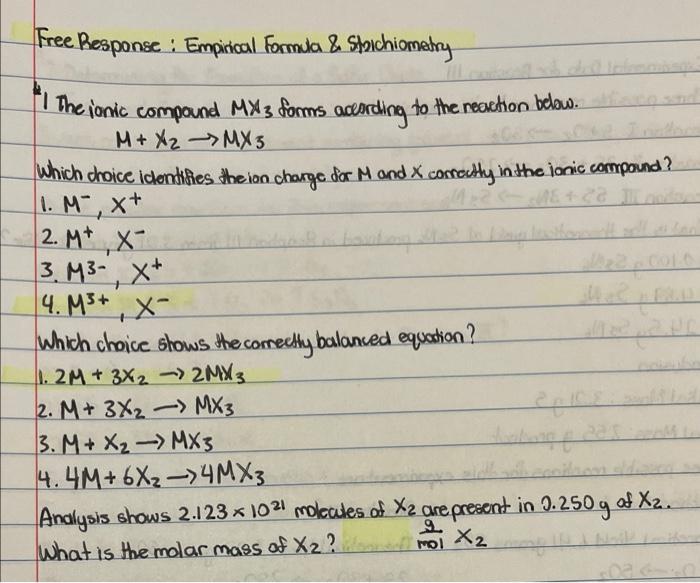 Free Response : Empirical Formula & Stoichiometry
*1 The ionic compound MX3 forms according to the reaction below.
M + X2 → MX3
Which choice identifies the ion charge for M and X correctly in the ionic compound?
1. M⁻, X⁺
2. M⁺, X⁻
3. M³⁻, X⁺
4. M³⁺, X⁻
Which choice shows the correctly balanced equation?
1. 2M + 3X2 → 2MX3
2. M + 3X2 → MX3
3. M + X2 → MX3
4. 4M + 6X2 → 4MX3
Analysis shows 2.123 × 10²¹ molecules of X2 are present in 0.250 g of X2.
What is the molar mass of X2? g/mol X2